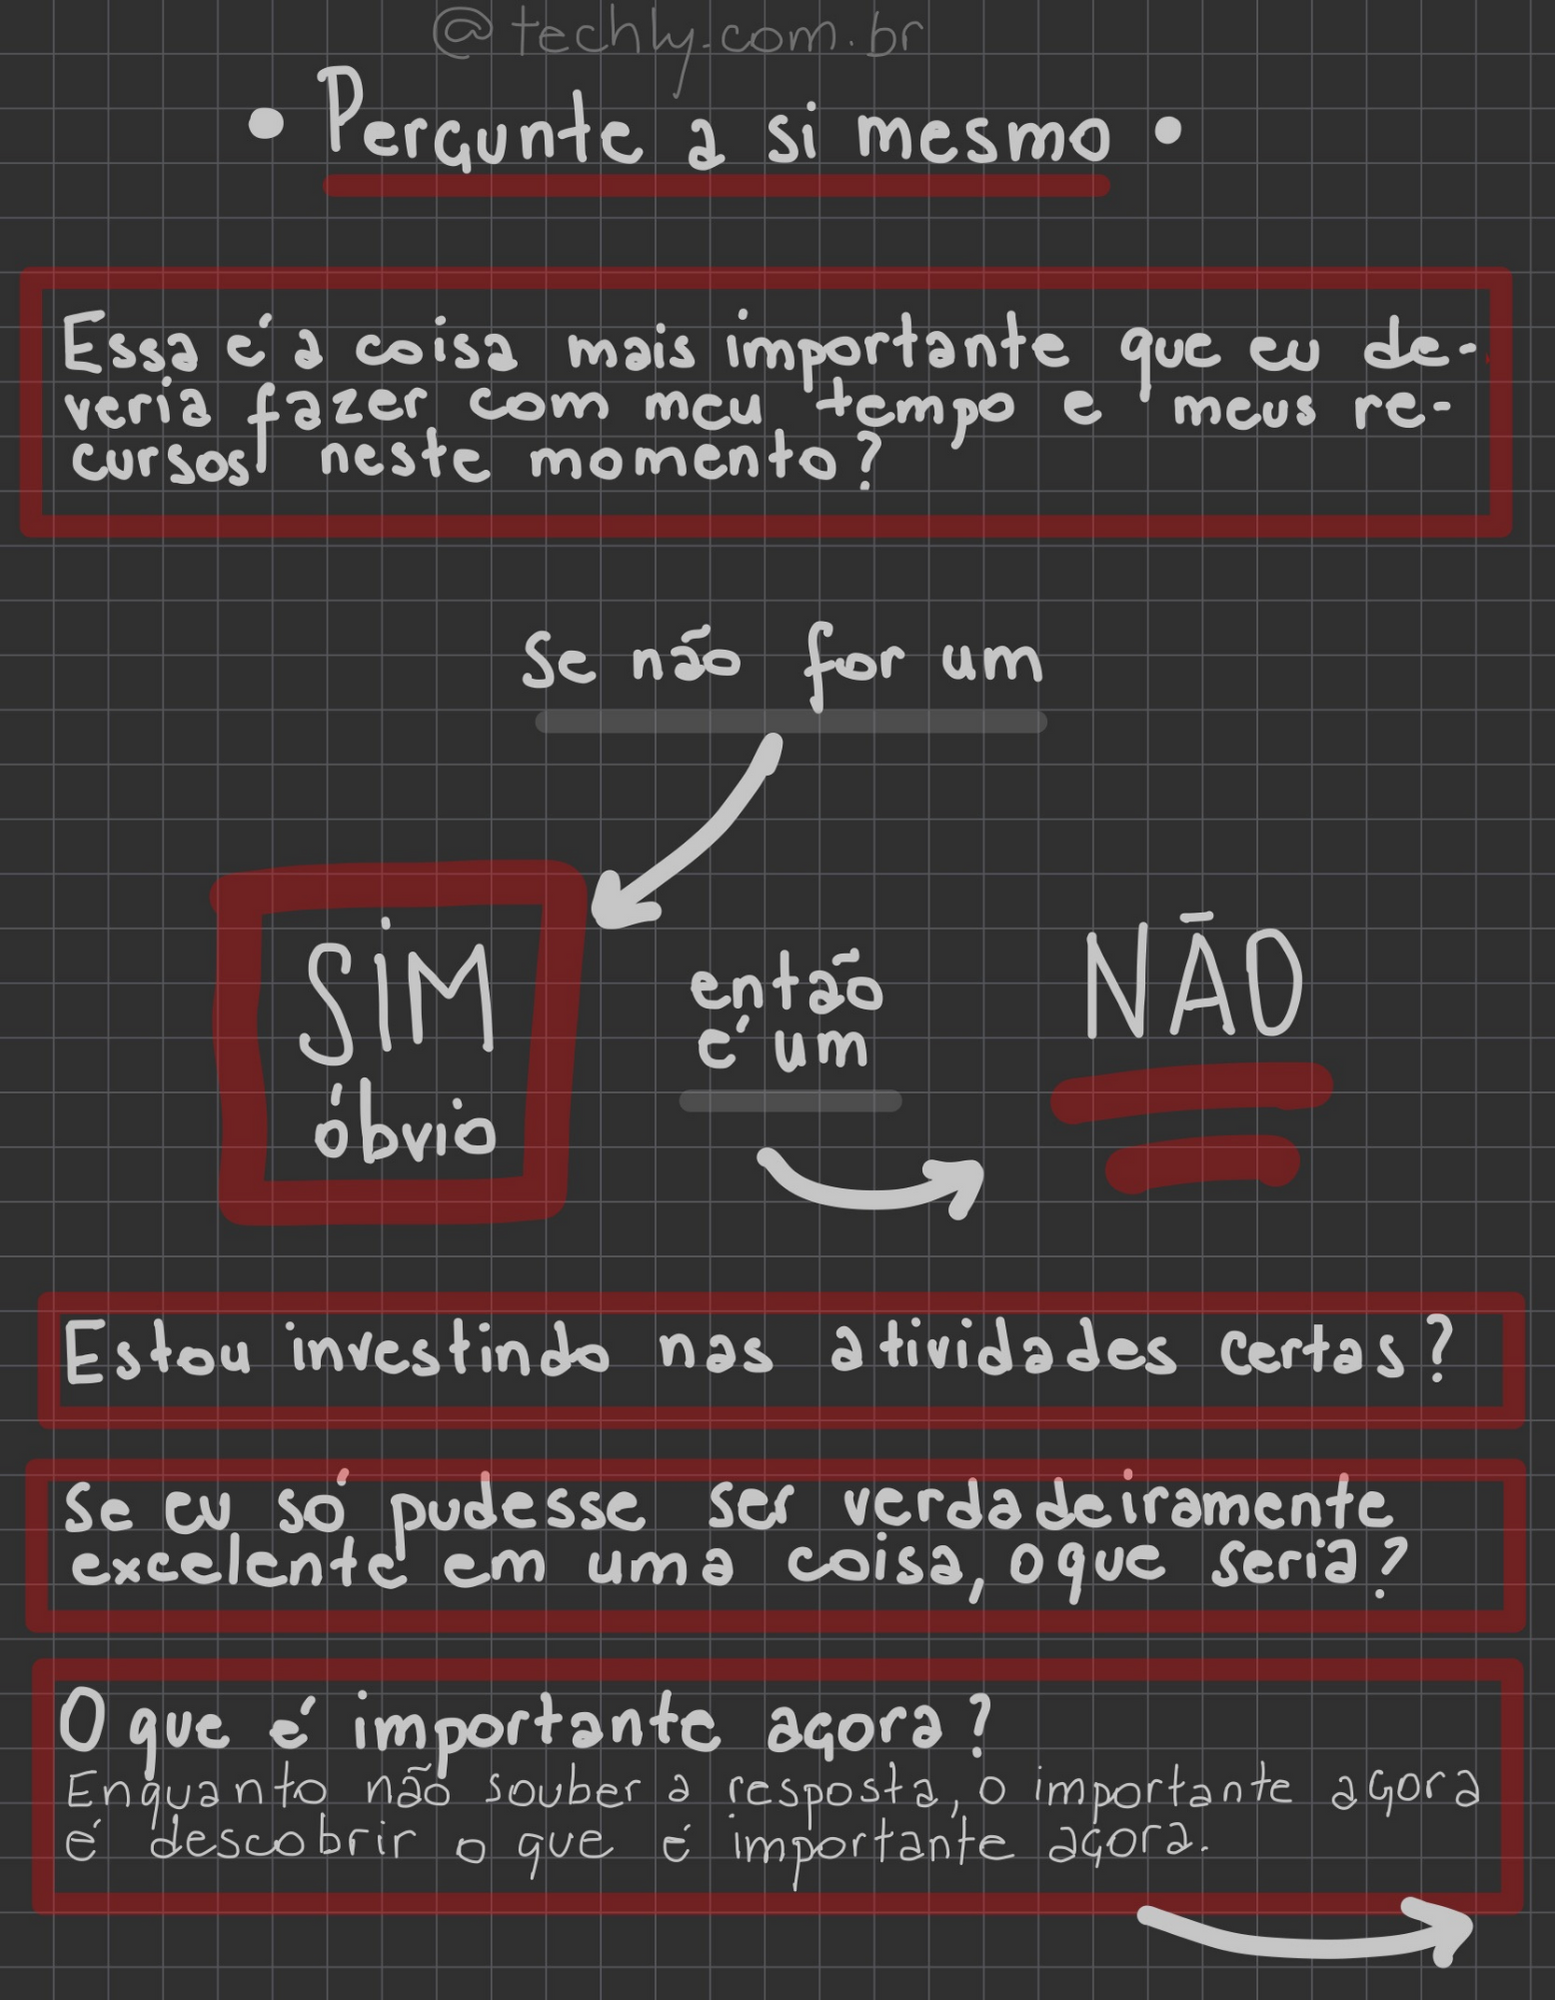 @techly.com.br
• Pergunte a si mesmo •
Essa é a coisa mais importante que eu de-
veria fazer com meu tempo e meus re-
cursos neste momento?
Se não for um
SIM
óbvio
então
é um
NÃO
Estou investindo nas atividades certas?
Se eu só pudesse ser verdadeiramente
excelente em uma coisa, o que seria?
O que é importante agora?
Enquanto não souber a resposta, o importante agora
é descobrir o que é importante agora.